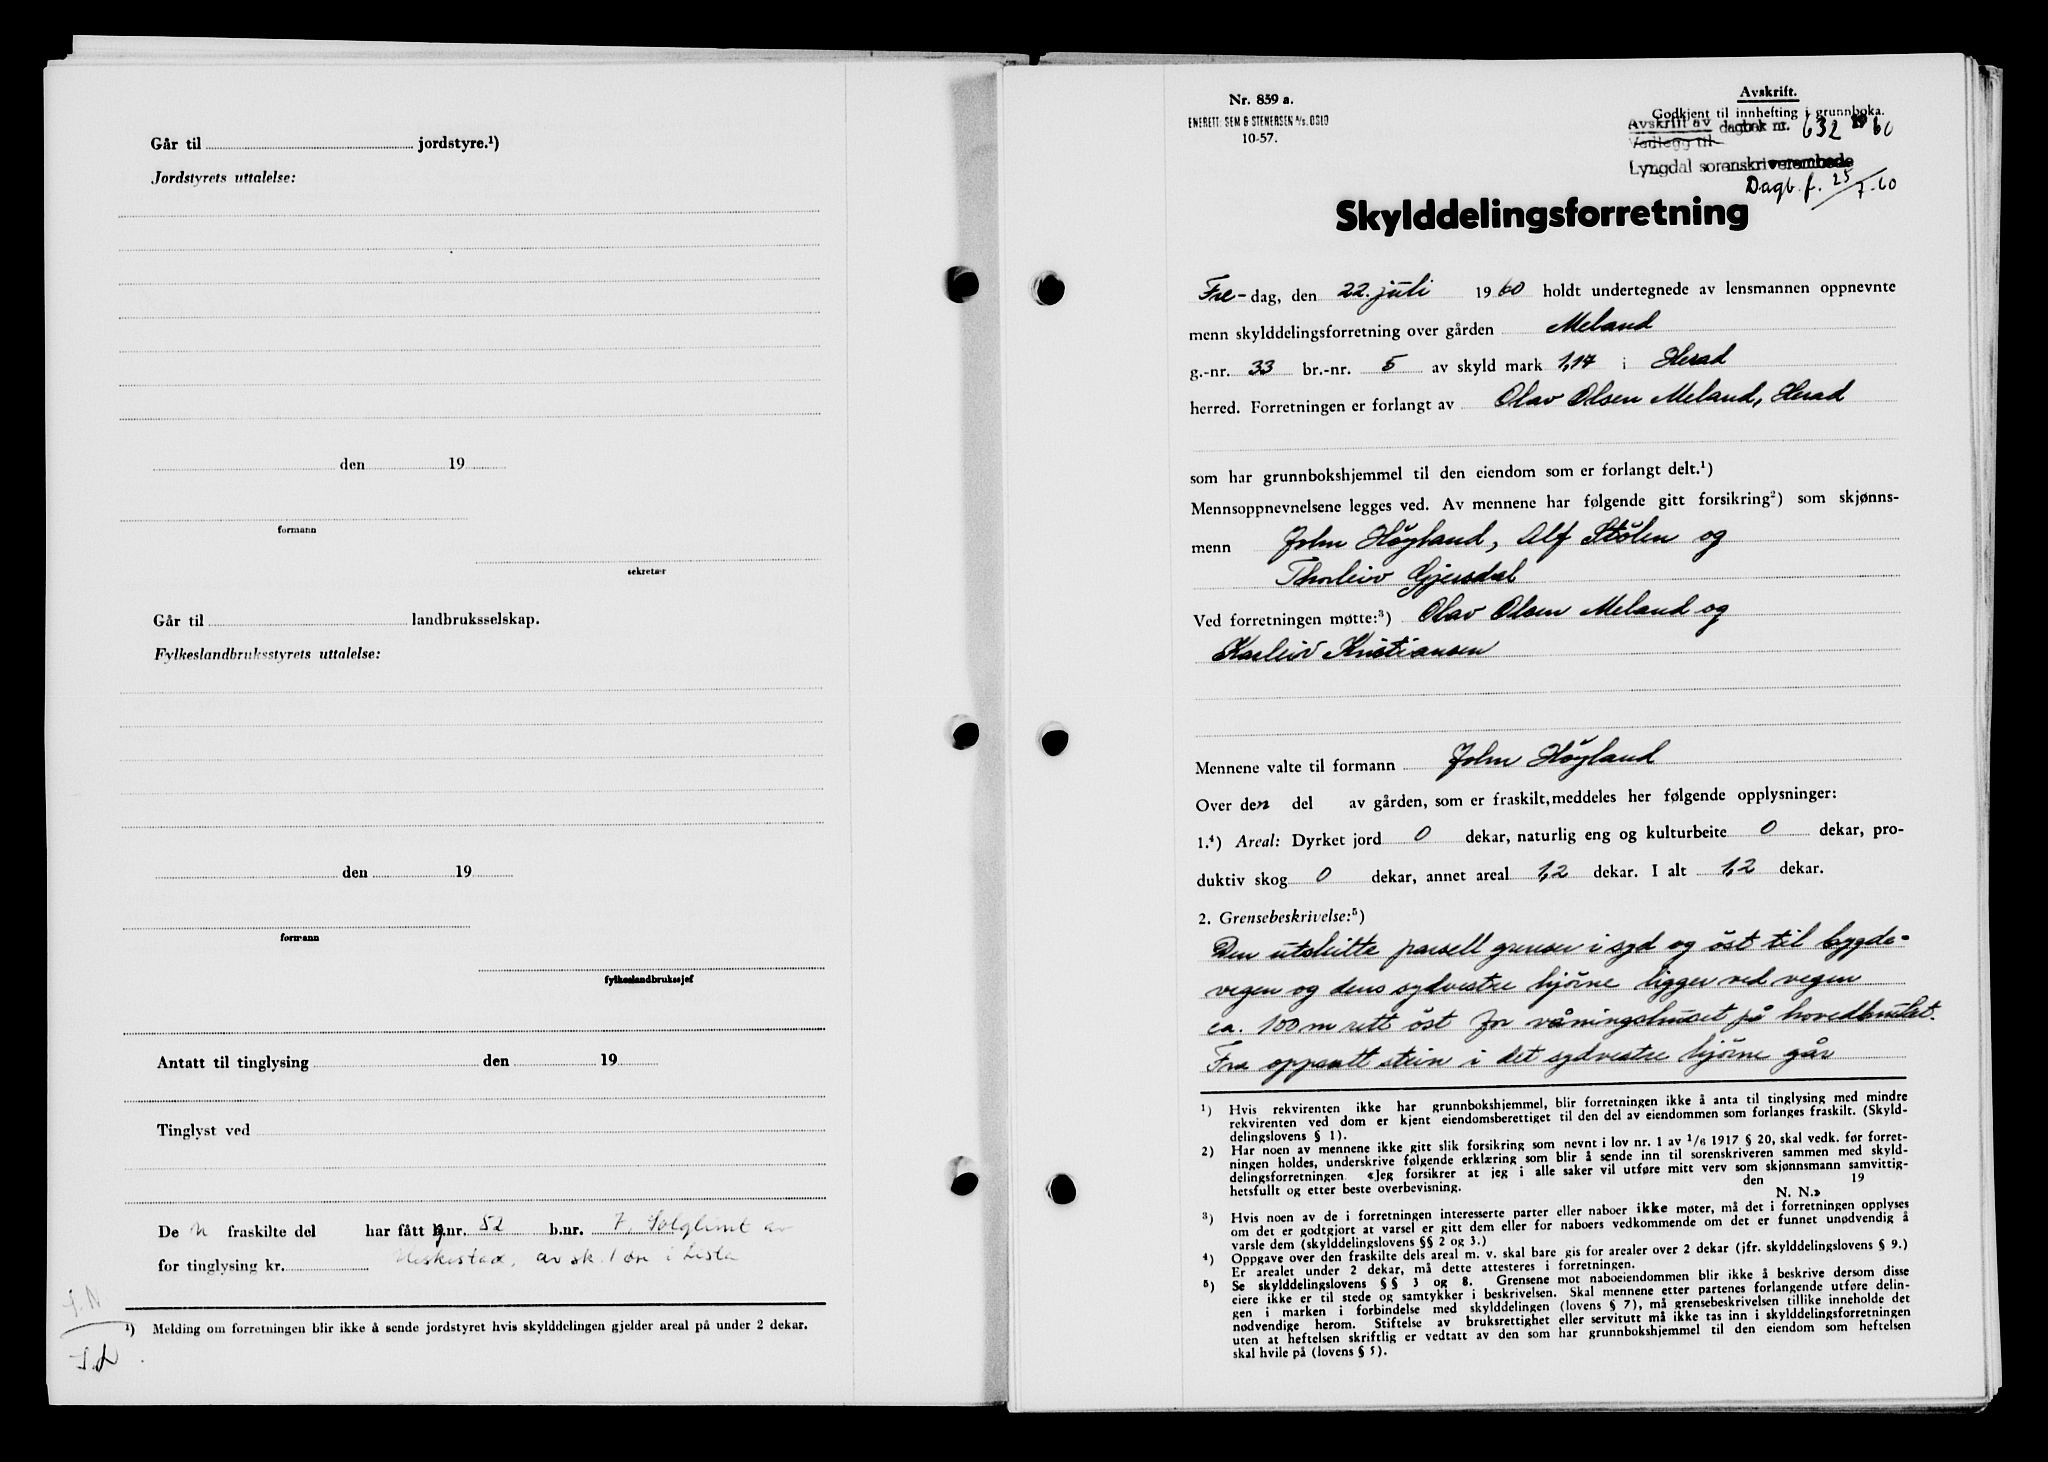 Går til jordstyre.¹)
Jordstyrets uttalelse:
den 19
formann
sekretær
Går til landbruksselskap.
Fylkeslandbruksstyrets uttalelse:
den 19
formann
fylkeslandbrukssjef
Antatt til tinglysing den 19
Tinglyst ved
De n fraskilte del har fått g.nr. 52 b.nr. 7, Solglimt av
for tinglysing kr. Heskestad, av sk. 1 øre i Lista
¹) Melding om forretningen blir ikke å sende jordstyret hvis skylddelingen gjelder areal på under 2 dekar.
Nr. 859 a.
ENERETT: SEM & STENERSEN A/S. OSLO
10-57.
Avskrift.
Godkjent til innhefting i grunnboka.
Avskrift av dagbok nr. 632 1960
Vedlegg til
Lyngdal sorenskriverembede
Dagb. f. 25/7-60
Skylddelingsforretning
Fre-dag, den 22. juli 1960 holdt undertegnede av lensmannen oppnevnte
menn skylddelingsforretning over gården Meland
g.-nr. 33 br.-nr. 5 av skyld mark 1,14 i Herad
herred. Forretningen er forlangt av Olav Olsen Meland, Herad
som har grunnbokshjemmel til den eiendom som er forlangt delt.¹)
Mennsoppnevnelsene legges ved. Av mennene har følgende gitt forsikring²) som skjønns-
menn John Høyland, Alf Stølen og
Thorleiv Gjersdal
Ved forretningen møtte:³) Olav Olsen Meland og
Karleiv Kristiansen
Mennene valte til formann John Høyland
Over den del av gården, som er fraskilt, meddeles her følgende opplysninger:
1.⁴) Areal: Dyrket jord 0 dekar, naturlig eng og kulturbeite 0 dekar, pro-
duktiv skog 0 dekar, annet areal 1,2 dekar. I alt 1,2 dekar.
2. Grensebeskrivelse:⁵)
Den utskilte parsell grenser i syd og øst til bygde-
vegen og dens sydvestre hjørne ligger ved vegen
ca. 100 m rett øst for våningshuset på hovedbruket.
Fra oppsatt stein i det sydvestre hjørne går
¹) Hvis rekvirenten ikke har grunnbokshjemmel, blir forretningen ikke å anta til tinglysing med mindre
rekvirenten ved dom er kjent eiendomsberettiget til den del av eiendommen som forlanges fraskilt. (Skyld-
delingslovens § 1).
²) Har noen av mennene ikke gitt slik forsikring som nevnt i lov nr. 1 av 1/6 1917 § 20, skal vedk. før forret-
ningen holdes, underskrive følgende erklæring som blir å sende inn til sorenskriveren sammen med skyld-
delingsforretningen. «Jeg forsikrer at jeg i alle saker vil utføre mitt verv som skjønnsmann samvittig-
hetsfullt og etter beste overbevisning. den 19
N. N.»
³) Hvis noen av de i forretningen interesserte parter eller naboer ikke møter, må det i forretningen opplyses
om det er godtgjort at varsel er gitt dem eller for naboers vedkommende om det er funnet unødvendig å
varsle dem (skylddelingslovens §§ 2 og 3.)
⁴) Oppgave over den fraskilte dels areal m. v. skal bare gis for arealer over 2 dekar (jfr. skylddelingslovens § 9.)
Er arealet under 2 dekar, må dette attesteres i forretningen.
⁵) Se skylddelingslovens §§ 3 og 8. Grensene mot naboeiendommen blir ikke å beskrive dersom disse
eiere ikke er til stede og samtykker i beskrivelsen. Skal mennene etter partenes forlangende utføre delin-
gen i marken i forbindelse med skylddelingen (lovens § 7), må grensebeskrivelsen tillike inneholde det
nødvendige herom. Stiftelse av bruksrettighet eller servitutt må ikke tas inn i skylddelingsforretningen
uten at heftelsen skriftlig er vedtatt av den som har grunnbokshjemmel til den eiendom som heftelsen
skal hvile på (lovens § 5).